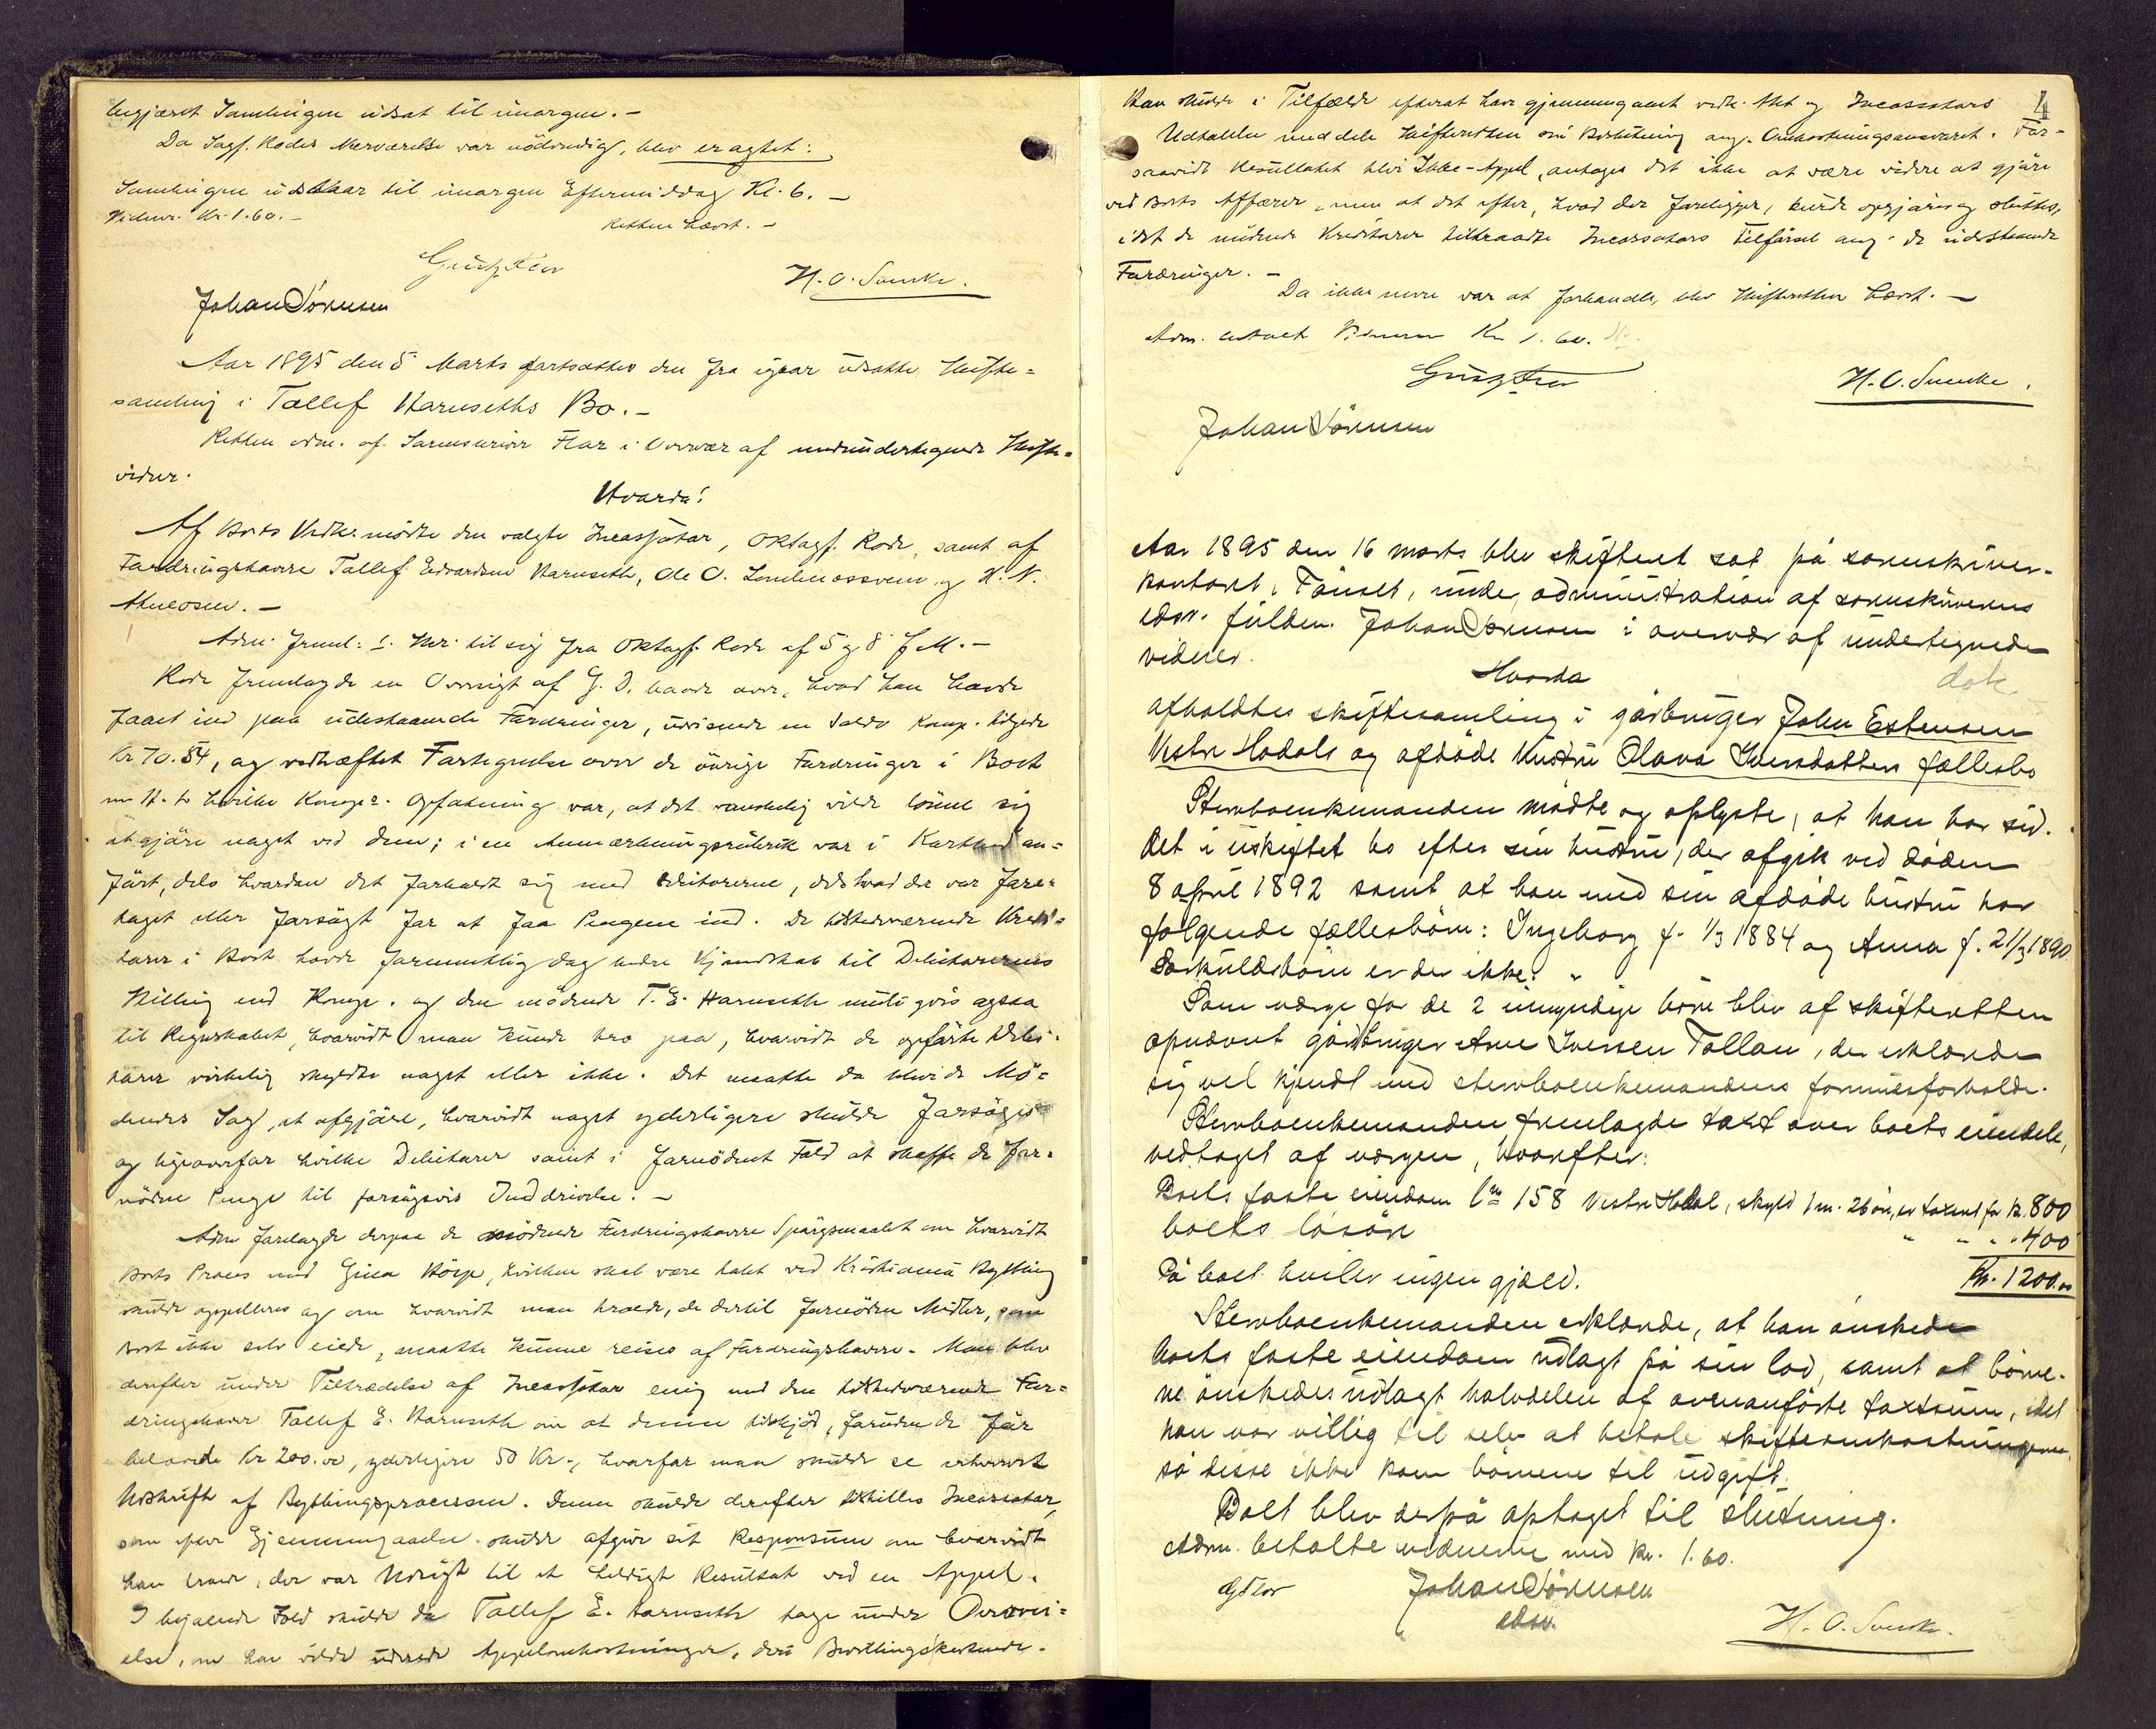 begjæret Samlingen udsat til imorgen. -
Da Sagf. Rodes Nærværelse var nödvendig, blev eragtet:
Samlingen udstaar til imorgen Eftermiddag Kl. 6. -
Vidner Kr. 1.60. - Retten hævet. -
H. O. Svenke.
Johan Sörensen
Aar 1895 den 5 Marts fortsattes den fra igaar udsatte Skifte=
samling i Tollef Harnseths Bo. -
Retten adm. af Sorenskriver Flor i Overvær af medundertegnede Skifte=
vidner.
Hvorda!
Af Boets Vedk. mödte den valgte Incassator, ORsagf. Rode, samt af
Fordringshavere Tollef Edvardsen Harnseth, Ole O. og H. N.
Adm. freml: 1. Skr. til sig fra ORsagf. Rode af 5 g 8 f M. -
Rode fremlagde en Oversigt af G. D. baade over, hvad han havde
faaet ind paa udestaaende Fordringer, udvisende en Saldo Komp. tilgode
Kr 70.54, og vedhæftet Fortegnelse over de övrige Fordringer i Boet
m H. t. hvilke Komp.s Opfatning var, at det vanskelig vilde lönne sig
at gjöre noget ved dem; i en Anmærkningsrubrik var i Korthed an=
fört, dels hvordan det forholdt sig med Debitorerne, dels hvad der var fore=
taget eller forsögt for at faa Pengene ind. De tilstedeværende Kredi=
torer i Boet havde formentlig dog bedre Kjendskab til Debitorernes
Stilling end Komp. og den mödende T. E. Harnseth muligvis ogsaa
til Regnskabet, hvorvidt man kunde tro paa, hvorvidt de opförte Debi=
torer virkelig skyldte noget eller ikke. Det maatte da blive de Mö=
dendes Sag, at afgjöre, hvorvidt noget yderligere skulde forsöges
og ligeoverfor hvilke Debitorer samt i fornödent Fald at skaffe de for=
nödne Penge til forsögsvis Inddrivelse. -
Adm forelagde derpaa de mödende Fordringshavere Spörgsmaalet om hvorvidt
Boets Proces mod Gina, hvilken skal være tabt ved Kristiania Bything
skulde appelleres og om hvorvidt man troede, de dertil fornödne Midler, som
Boet ikke selv eiede, maatte kunne reises af Fordringshavere. Man blev
derefter under Tiltrædelse af Incassator enig med den tilstedeværende For=
dringshaver Tollef E. Harnseth om at denne tilskjöd, foruden de för
belovede Kr 200.00, yderligere 50 Kr., hvorfor man skulde se erhvervet
Udskrift af Bythingsprocessen. Denne skulde derefter tilstilles Incassator,
som efter Gjennemgaaelse skulde afgive sit Responsum om hvorvidt
han troede, der var Udsigt til et heldigt Resultat ved en Appel.
I bejaende Fald skulde da Tollef E. Harnseth tage under Overvei=
else, om han vilde udrede Appelomkostninger, deri
4
Han skulde i Tilfælde efterat have gjennemgaaet vedk. Akt og Incassators
Udtalelse meddele Skifteretten sin Beslutning ang. Omkostningsansvaret. For=
saavidt Resultatet blev Ikke-Appel, antages det ikke at være videre at gjöre
ved Boets Affærer, men at det efter, hvad der foreligger, burde opgjöres og sluttes,
idet de mödende Kreditorer tiltraadte Incassators Tilförsel ang. de udestaaende
Fordringer. -
Da ikke mere var at forhandle, blev Skifteretten hævet. -
Adm. betalte Vidnerne Kr 1.60.
H. O. Svenke.
Johan Sörensen
Aar 1895 den 16 marts blev skifteret sat på sorenskriver-
kontoret, Tönset, under administration af sorenskriverens
edsv. fuldm. Johan Sörensen i overvær af undertegnede
vidner.
Hvorda dok.
afholdtes skiftesamling i gårbruger John Estensen
Vestre Hodals og afdöde hustru Olava Iversdatters fællesbo
Stervboenkemanden mödte og oplyste, at han har sid-
det i uskiftet bo efter sin hustru, der afgik ved döden
8 april 1892 samt at han med sin afdöde hustru har
fölgende fællesbörn: Ingeborg f. 1/3 1884 og Anna f. 21/3 1890
Särkuldsbörn er der ikke.
Som værge for de 2 umyndige börn blev af skifteretten
opnævnt gårdbruger Arne Iversen Tollan, der erklærede
sig vel kjendt med stervboenkemandens formuesforholde.
Stervboenkemanden fremlagde taxt over boets eiendele,
vedtaget af værgen, hvorefter:
Boets faste eiendom Lno 158 Vestre Hodal, skyld 1 m. 26 öre, er taxeret for kr. 800
boets lösöre " " " 400
På boet hviler ingen gjæld. Kr. 1200.00
Stervboenkemanden erklærede, at han önskede
boets faste eiendom udlagt på sin lod, samt at börne-
ne önskedes udlagt halvdelen af ovenanförte taxtsum, idet
han var villig til selv at betale skifteomkostningerne
så disse ikke kom börnene til udgift.
Boet blev derpå optaget til slutning.
Adm. betalte vidnerne med kr. 1.60.
GFlor Johan Sörensen
edsv.
H. O. Svenke.